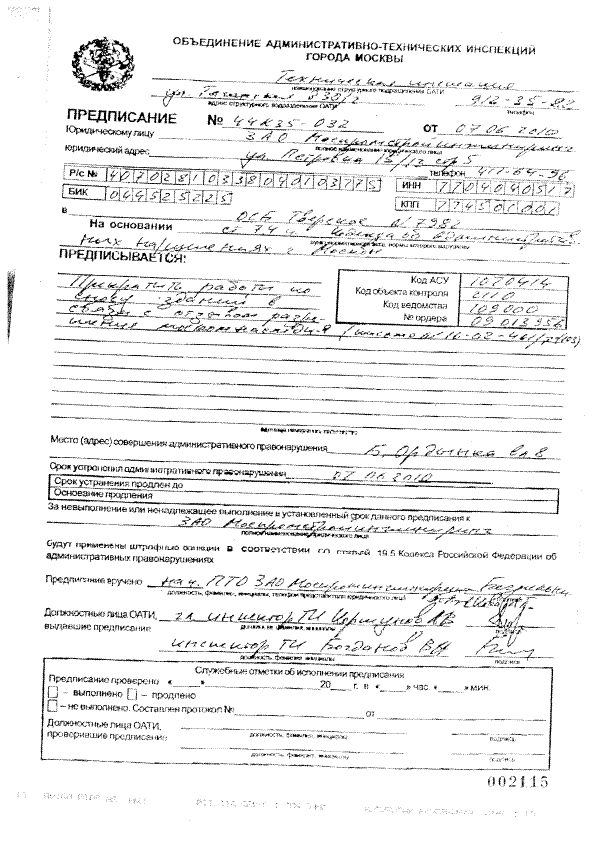 ОБЪЕДИНЕНИЕ АДМИНИСТРАТИВНО-ТЕХНИЧЕСКИХ ИНСПЕКЦИЙ
ГОРОДА МОСКВЫ
Техническая инспекция
наименование структурного подразделения ОАТИ
ул.
адрес структурного подразделения ОАТИ
912-35-82
телефон
ПРЕДПИСАНИЕ № 44К35-032 ОТ 07.06.2010
Юридическому лицу ЗАО Моспромстройинжиниринг
полное наименование юридического лица
юридический адрес ул. Петровка 15/13 стр 5 телефон 417-64-96
Р/с № 40702810338040103775 ИНН 7704040517
БИК 044525225 КПП 774501001
в ОСБ Тверское № 7982
На основании ст 74 ч.
ных нарушениях г. Москвы
ПРЕДПИСЫВАЕТСЯ:
Прекратить работы по
сносу здания в
связи с отзывом разре-
шения
Код АСУ 1070414
Код объекта контроля 2110
Код ведомства 109000
№ ордера 09013956
Место (адрес) совершения административного правонарушения Б. Ордынка вл 8
Срок устранения административного правонарушения 07.06.2010
Срок устранения продлен до
Основание продления
За невыполнение или ненадлежащее выполнение в установленный срок данного предписания к
ЗАО Моспромстройинжиниринг
полное наименование юридического лица
будут применены штрафные санкции в соответствии со статьей 19.5 Кодекса Российской Федерации об
административных правонарушениях
Предписание вручено нач. ПТО ЗАО Моспромстройинжиниринг
должность, фамилия, инициалы, телефон представителя юридического лица
подпись
Должностные лица ОАТИ, гл. инспектор ТИ
выдавшие предписание
должность, фамилия, инициалы
подпись
инспектор ТИ Богданов ВН
должность, фамилия, инициалы
подпись
Служебные отметки об исполнении предписания
Предписание проверено «___» ______ 20__ г. в «___» час. «___» мин.
– выполнено – продлено
– не выполнено. Составлен протокол № от
Должностные лица ОАТИ,
проверившие предписание
должность, фамилия, инициалы
подпись
должность, фамилия, инициалы
подпись
002115